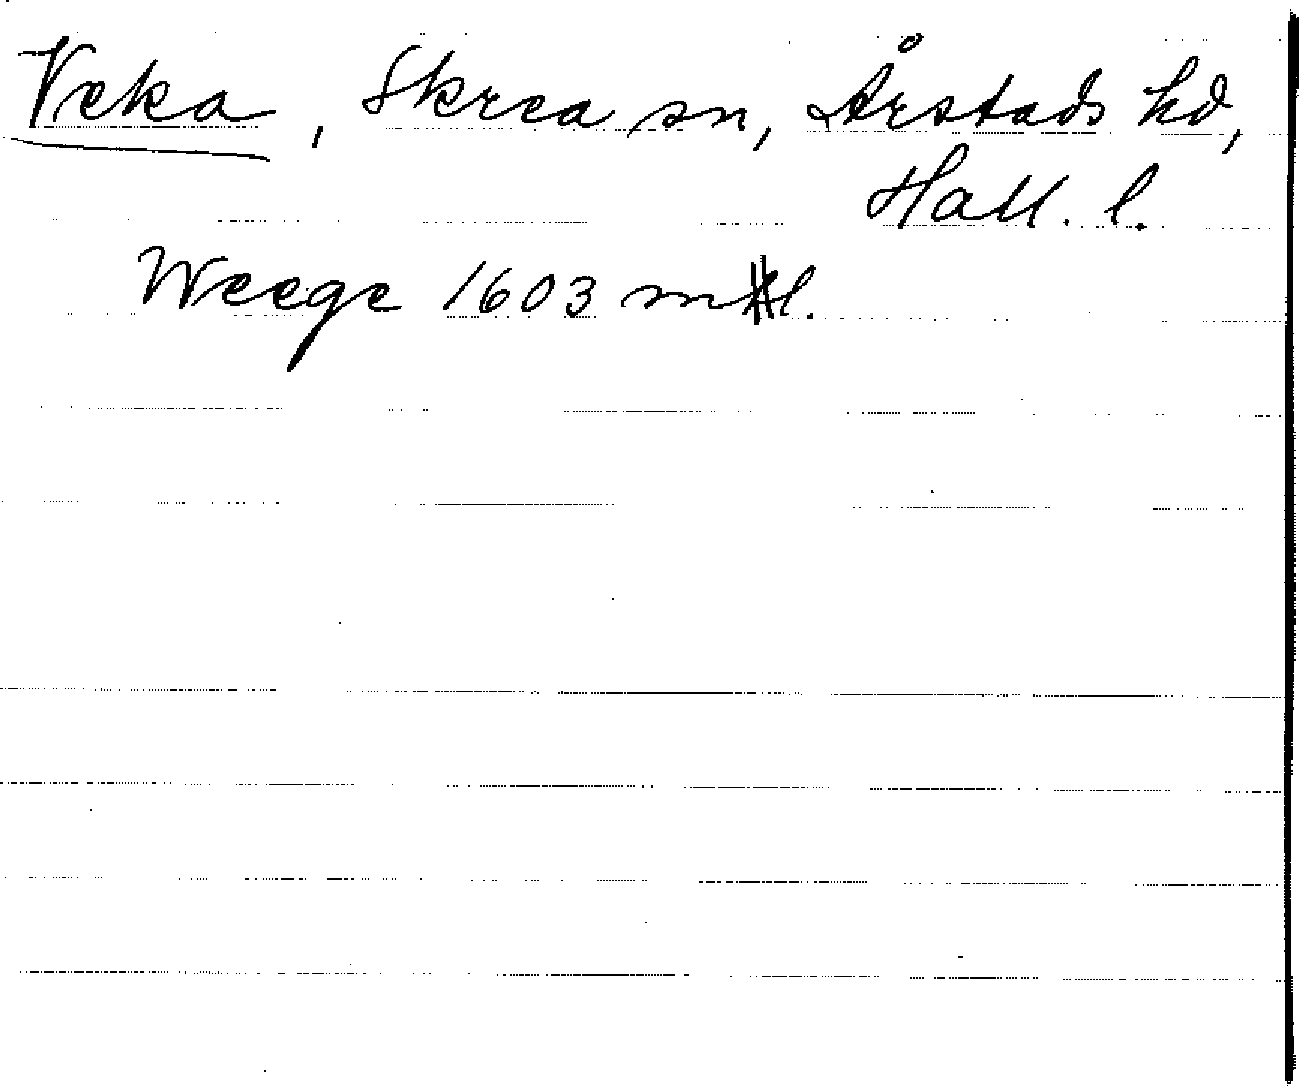 Veka, Skrea sn, Årstads hd,
Hall. l.
Weege 1603 mtl.